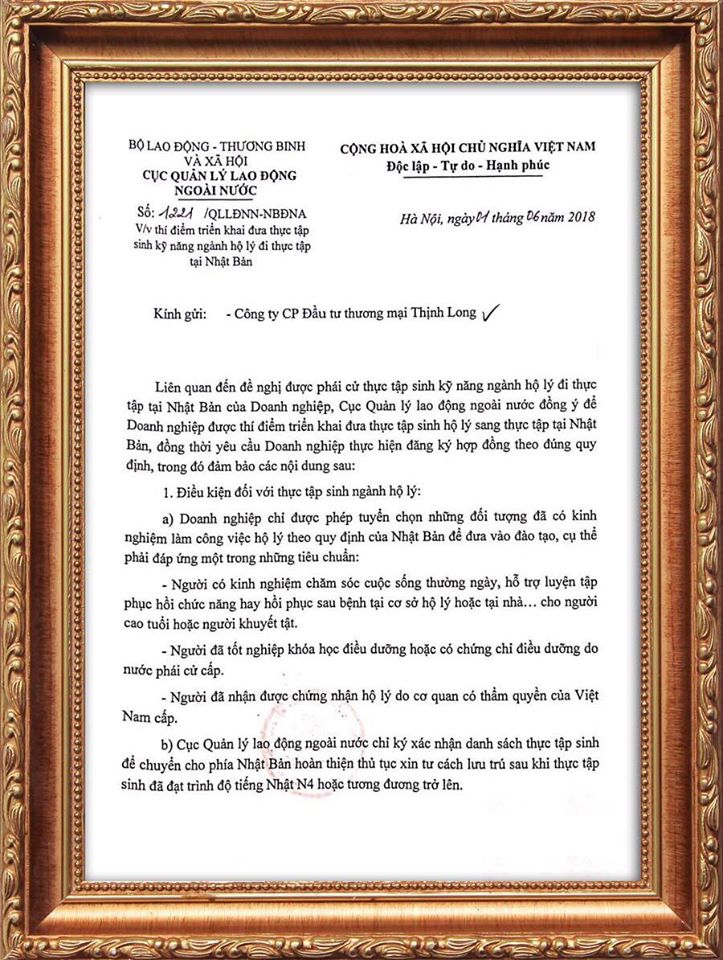 BỘ LAO ĐỘNG - THƯƠNG BINH
VÀ XÃ HỘI
CỤC QUẢN LÝ LAO ĐỘNG
NGOÀI NƯỚC
Số: 1221 /QLLĐNN-NBĐNA
V/v thí điểm triển khai đưa thực tập
sinh kỹ năng ngành hộ lý đi thực tập
tại Nhật Bản
CỘNG HOÀ XÃ HỘI CHỦ NGHĨA VIỆT NAM
Độc lập - Tự do - Hạnh phúc
Hà Nội, ngày 01 tháng 06 năm 2018
Kính gửi: - Công ty CP Đầu tư thương mại Thịnh Long
Liên quan đến đề nghị được phái cử thực tập sinh kỹ năng ngành hộ lý đi thực
tập tại Nhật Bản của Doanh nghiệp, Cục Quản lý lao động ngoài nước đồng ý để
Doanh nghiệp được thí điểm triển khai đưa thực tập sinh hộ lý sang thực tập tại Nhật
Bản, đồng thời yêu cầu Doanh nghiệp thực hiện đăng ký hợp đồng theo đúng quy
định, trong đó đảm bảo các nội dung sau:
1. Điều kiện đối với thực tập sinh ngành hộ lý:
a) Doanh nghiệp chỉ được phép tuyển chọn những đối tượng đã có kinh
nghiệm làm công việc hộ lý theo quy định của Nhật Bản để đưa vào đào tạo, cụ thể
phải đáp ứng một trong những tiêu chuẩn:
- Người có kinh nghiệm chăm sóc cuộc sống thường ngày, hỗ trợ luyện tập
phục hồi chức năng hay hồi phục sau bệnh tại cơ sở hộ lý hoặc tại nhà… cho người
cao tuổi hoặc người khuyết tật.
- Người đã tốt nghiệp khóa học điều dưỡng hoặc có chứng chỉ điều dưỡng do
nước phái cử cấp.
- Người đã nhận được chứng nhận hộ lý do cơ quan có thẩm quyền của Việt
Nam cấp.
b) Cục Quản lý lao động ngoài nước chỉ ký xác nhận danh sách thực tập sinh
để chuyển cho phía Nhật Bản hoàn thiện thủ tục xin tư cách lưu trú sau khi thực tập
sinh đã đạt trình độ tiếng Nhật N4 hoặc tương đương trở lên.